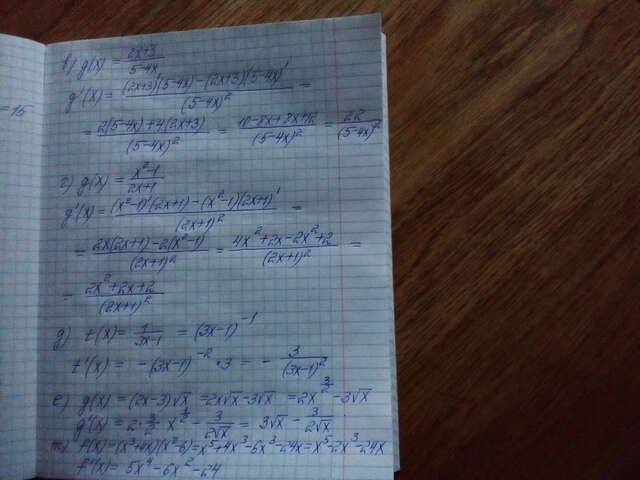 =15
в) g(x) = (2x+3)/(5-4x)
g'(x) = ((2x+3)'(5-4x)-(2x+3)(5-4x)')/(5-4x)² =
= (2(5-4x)+4(2x+3))/(5-4x)² = (10-8x+8x+12)/(5-4x)² = 22/(5-4x)²
г) g(x) = (x²-1)/(2x+1)
g'(x) = ((x²-1)'(2x+1)-(x²-1)(2x+1)')/(2x+1)² =
= (2x(2x+1)-2(x²-1))/(2x+1)² = (4x²+2x-2x²+2)/(2x+1)² =
= (2x²+2x+2)/(2x+1)²
д) t(x) = 1/(3x-1) = (3x-1)⁻¹
t'(x) = -(3x-1)⁻²·3 = - 3/(3x-1)²
е) g(x) = (2x-3)√x = 2x√x-3√x = 2x^(3/2) - 3√x
g'(x) = 2·3/2 x^(1/2) - 3/(2√x) = 3√x - 3/(2√x)
f(x) = (x³+4x)(x²-6) = x⁵+4x³-6x³-24x = x⁵-2x³-24x
f'(x) = 5x⁴-6x²-24